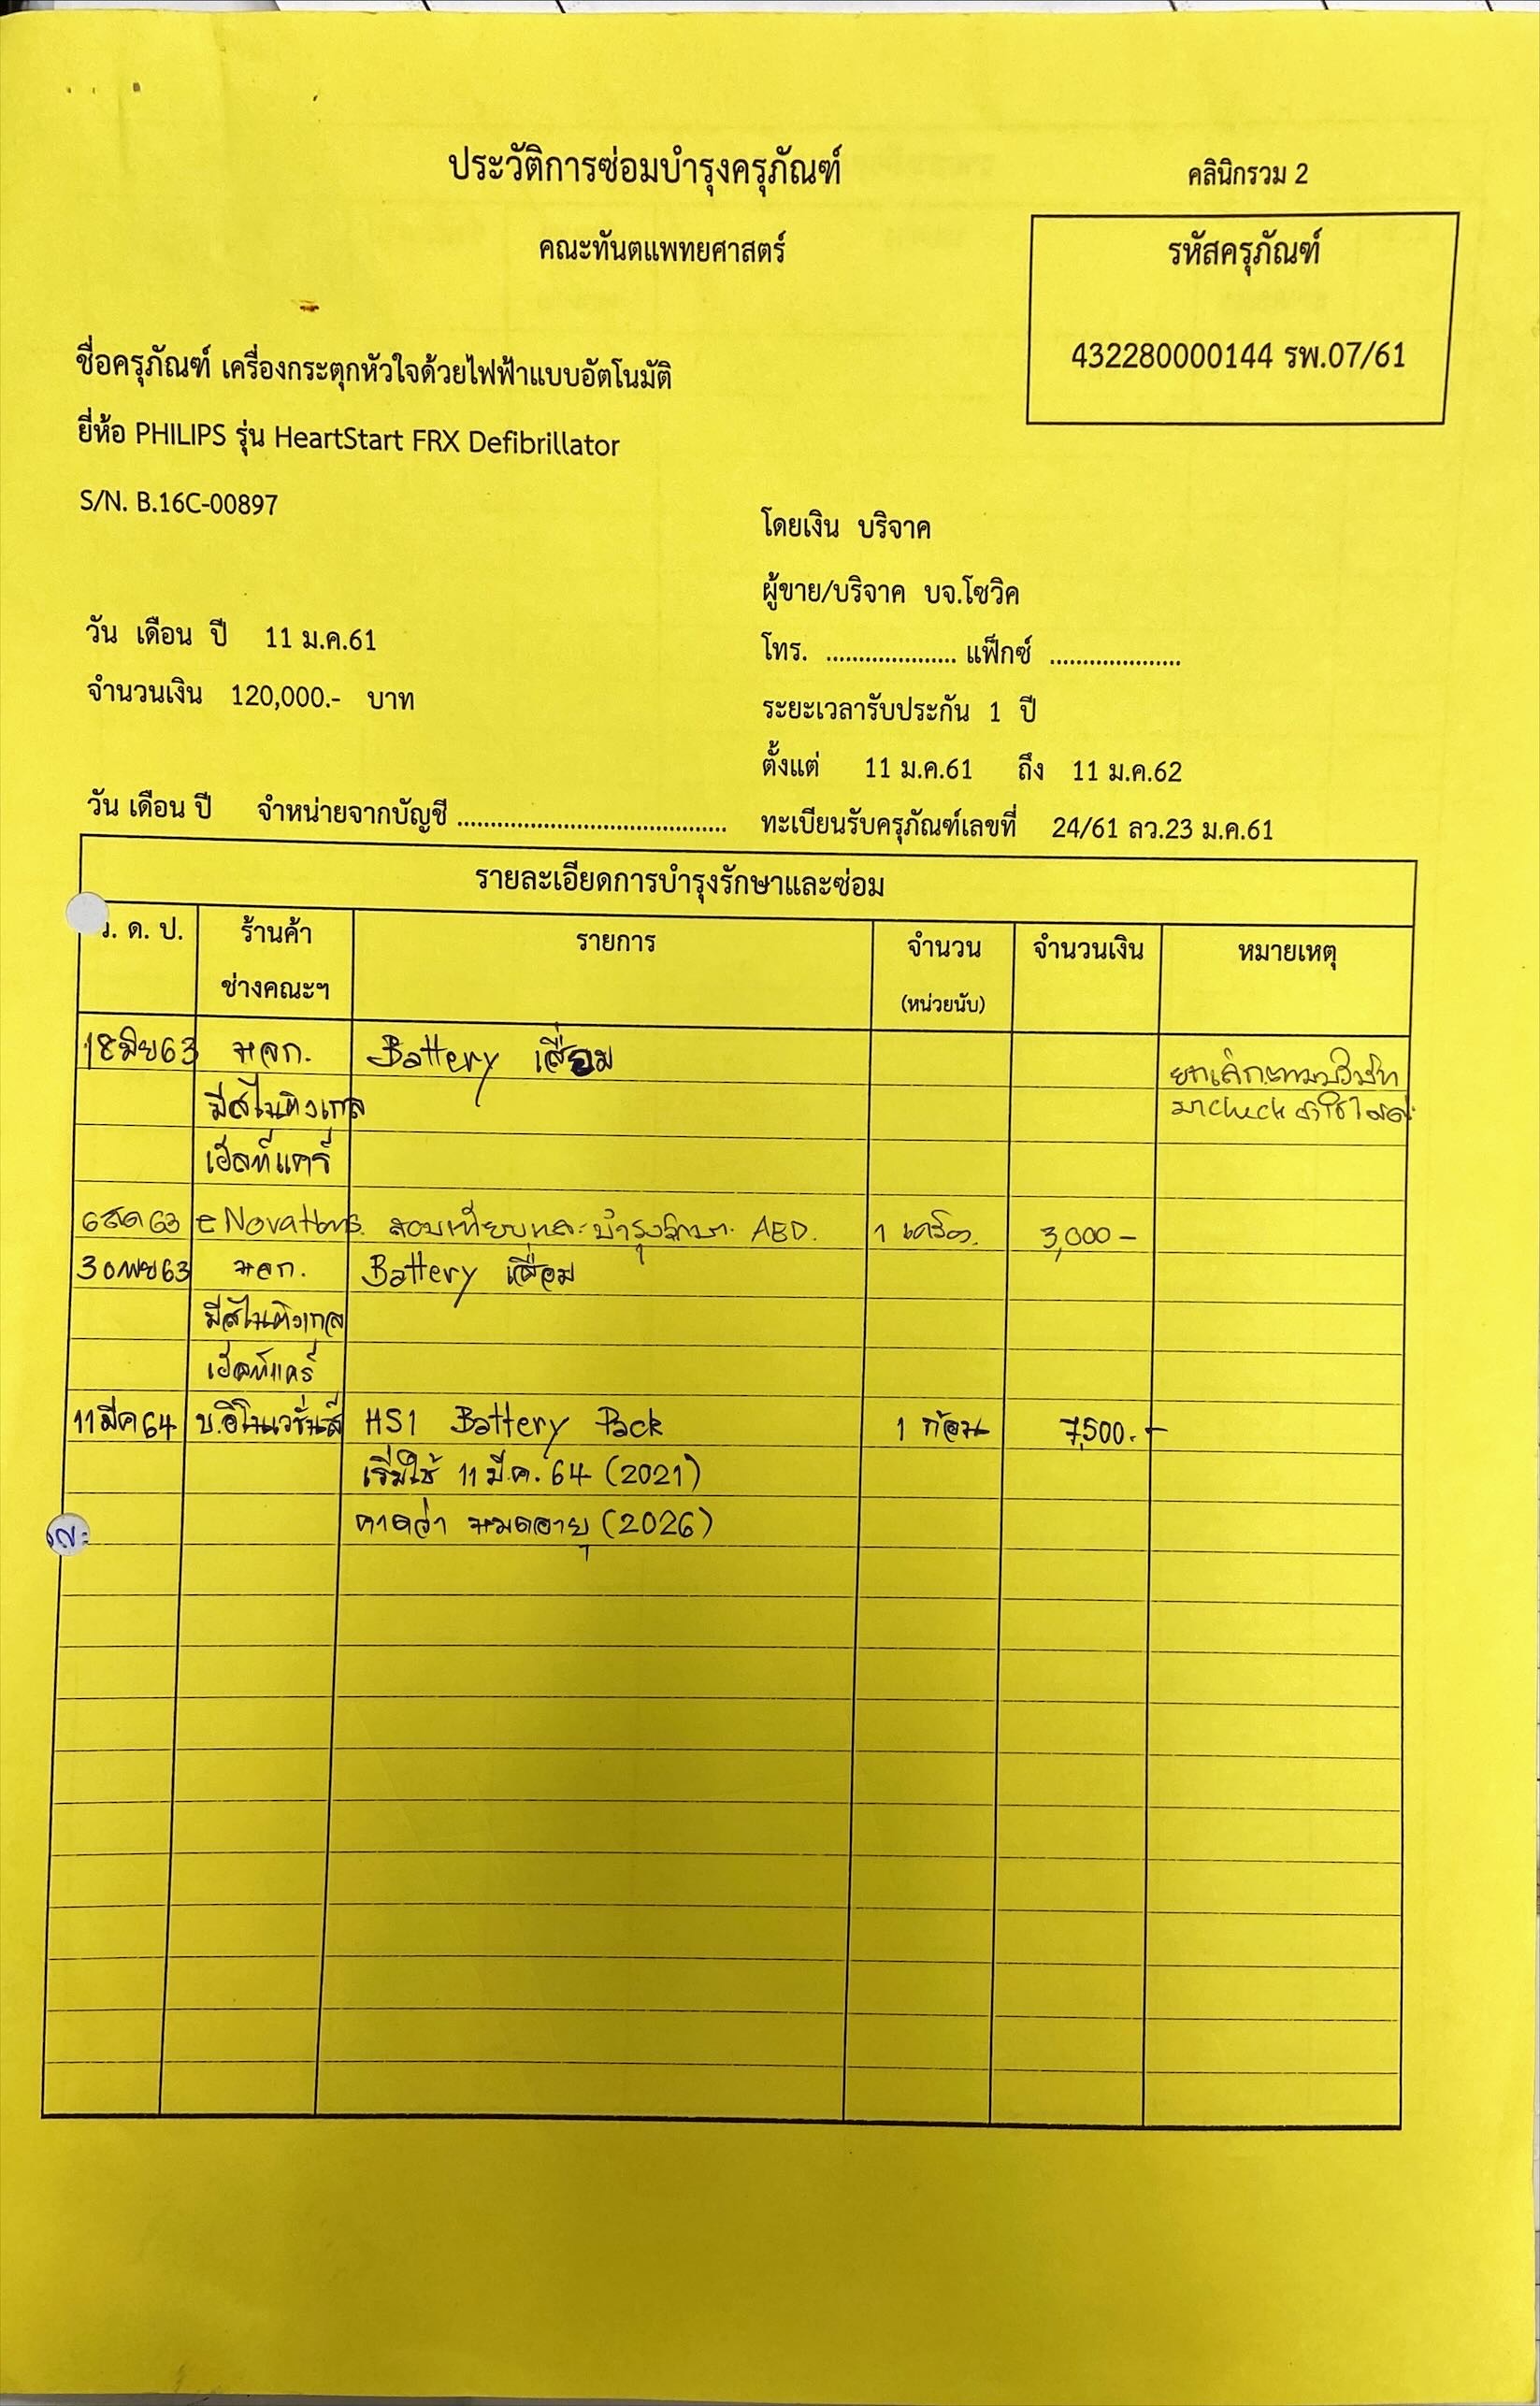 ประวัติการซ่อมบำรุงครุภัณฑ์
คลินิกรวม 2
คณะทันตแพทยศาสตร์
รหัสครุภัณฑ์
432280000144 รพ.07/61
ชื่อครุภัณฑ์ เครื่องกระตุกหัวใจด้วยไฟฟ้าแบบอัตโนมัติ
ยี่ห้อ PHILIPS รุ่น HeartStart FRX Defibrillator
S/N. B.16C-00897
โดยเงิน บริจาค
ผู้ขาย/บริจาค บจ.โซวิค
วัน เดือน ปี 11 ม.ค.61
โทร. .................... แฟ็กซ์ ....................
จำนวนเงิน 120,000.- บาท
ระยะเวลารับประกัน 1 ปี
ตั้งแต่ 11 ม.ค.61 ถึง 11 ม.ค.62
วัน เดือน ปี จำหน่ายจากบัญชี ........................................
ทะเบียนรับครุภัณฑ์เลขที่ 24/61 ลว.23 ม.ค.61
รายละเอียดการบำรุงรักษาและซ่อม
ว. ด. ป. ร้านค้า รายการ จำนวน จำนวนเงิน หมายเหตุ
ช่างคณะฯ (หน่วยนับ)
18 มิย 63 หจก. Battery เสื่อม
ยกเลิก
มา check
เฮลท์แคร์
6 สค 63 eNovations. สอบเทียบและบำรุงรักษา AED. 1 เครื่อง. 3,000 -
30 พย 63 หจก. Battery เสื่อม
เฮลท์แคร์
11 มีค 64 บ.อีโนเวชั่นส์ HS1 Battery Pack 1 ก้อน 7,500.-
เริ่มใช้ 11 มี.ค. 64 (2021)
คาดว่า หมดอายุ (2026)